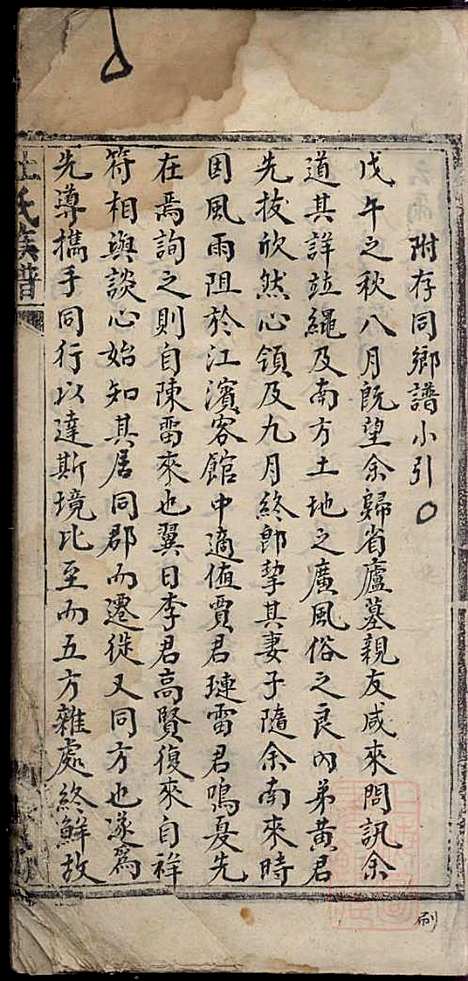 附存同鄉譜小引
戊午之秋八月旣望余歸省廬墓親友咸來問訊余
道其詳竝繩及南方土地之廣風俗之良內弟黃君
先拔欣然心領及九月終郎挈其妻子隨余南來時
因風雨阻於江濱客館中適値賈君璉雷君鳴憂先
在焉詢之則自陳雷來也翼日李君高賢復來自祥
符相與談心始知其居同郡而遷徙又同方也遂爲
先導攜手同行以達斯境比至而五方雜處終鮮故
氏族譜
刷